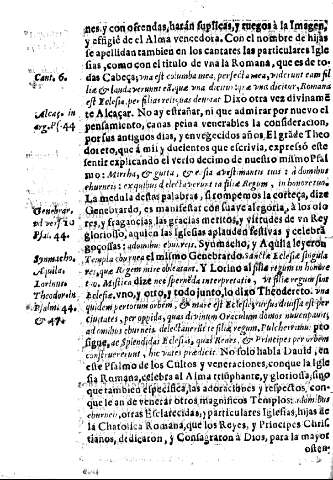 nes, y con ofrendas, harán suplicas, y ruegos à la Imagen,
y effigie de el Alma vencedora. Con el nombre de hijas
se apellidan tambien en los cantares las particulares Igle
sias, como con el titulo de vna la Romana, que es de to-
Cant. 6. das Cabeça; vna est columba mea, perfecta mea, viderunt eam fi
liæ & laudaverunt eã, quæ vna dicitur: quæ vna dicitur, Romana
est Ecclesia, per filias reliquas denotat Dixo otra vez divinamẽ
Alcaç. in te Alcaçar. No ay estrañar, ni que admirar por nuevo el
pensamiento, canas peina venerables la consideracion,
44 por sus antiguos dias, y envegecidos años, El grãde Theo
doreto, que à mil y ducientos que escrivia, expressò este
sentir explicando el verso decimo de nuestro mismo Psal
mo: Mirrha, & gutta, & casia à vestimentis tuis: à domibus
eburneis: ex quibus delectaverunt te filiæ Regum, in honore tuo.
La medula destas palabras, si rompemos la corteça, dize
Genebrar. Genebrardo, es manifestar con suave alegoria, à los olo
res, y fragancias, las gracias meritos, y virtudes de vn Rey
Psal. 44. glorioso, aquien las Iglesias aplauden festivas y celebrã
goçosas: à domibus eburneis. Symacho, y Aquila leyeron
Symacho. Templa eburnea el mismo Genebrardo. Sanctæ Ecclesiæ singula
Aquila. res, quæ Regem mire oblectant. Y Lorino al filiæ regum in honore
Lorinus. tuo, Mystica dize nec spernẽda interpretatio, vt filiæ regum sint
Theodoretn Ecclesiæ, vno, y otro, y todo junto, lo dixo Theodereto. vna
Psalmi. 44. quidem per totum orbem, & mare est Ecclesia,
& 47. Civitates, per oppida, quas divinum Oraculum domos nuncupavit,
ad omibus eburneis delectaverũt te filiæ regum, Pulcherrimæ. pro
sigue, ac splendidas Ecclesias, quas Reges, & Principes orbem
construxerunt, hic vates prædicit. No solo habla David, en
este Psalmo de los Cultos y veneraciones, conque la Igle
sia Romana, celebra al Alma triũphante, y gloriosa, sino
que tambien especifica, las adoraciones y respectos, con-
que le an de venerar otros magnificos Templos: à domibus
eburneis, otras Esclarecidas, y particulares Iglesias, hijas de
la Chatolica Romana, que los Reyes, y Principes Chris
tianos, dedicaron, y Consagraron à Dios, para la mayor
osten-